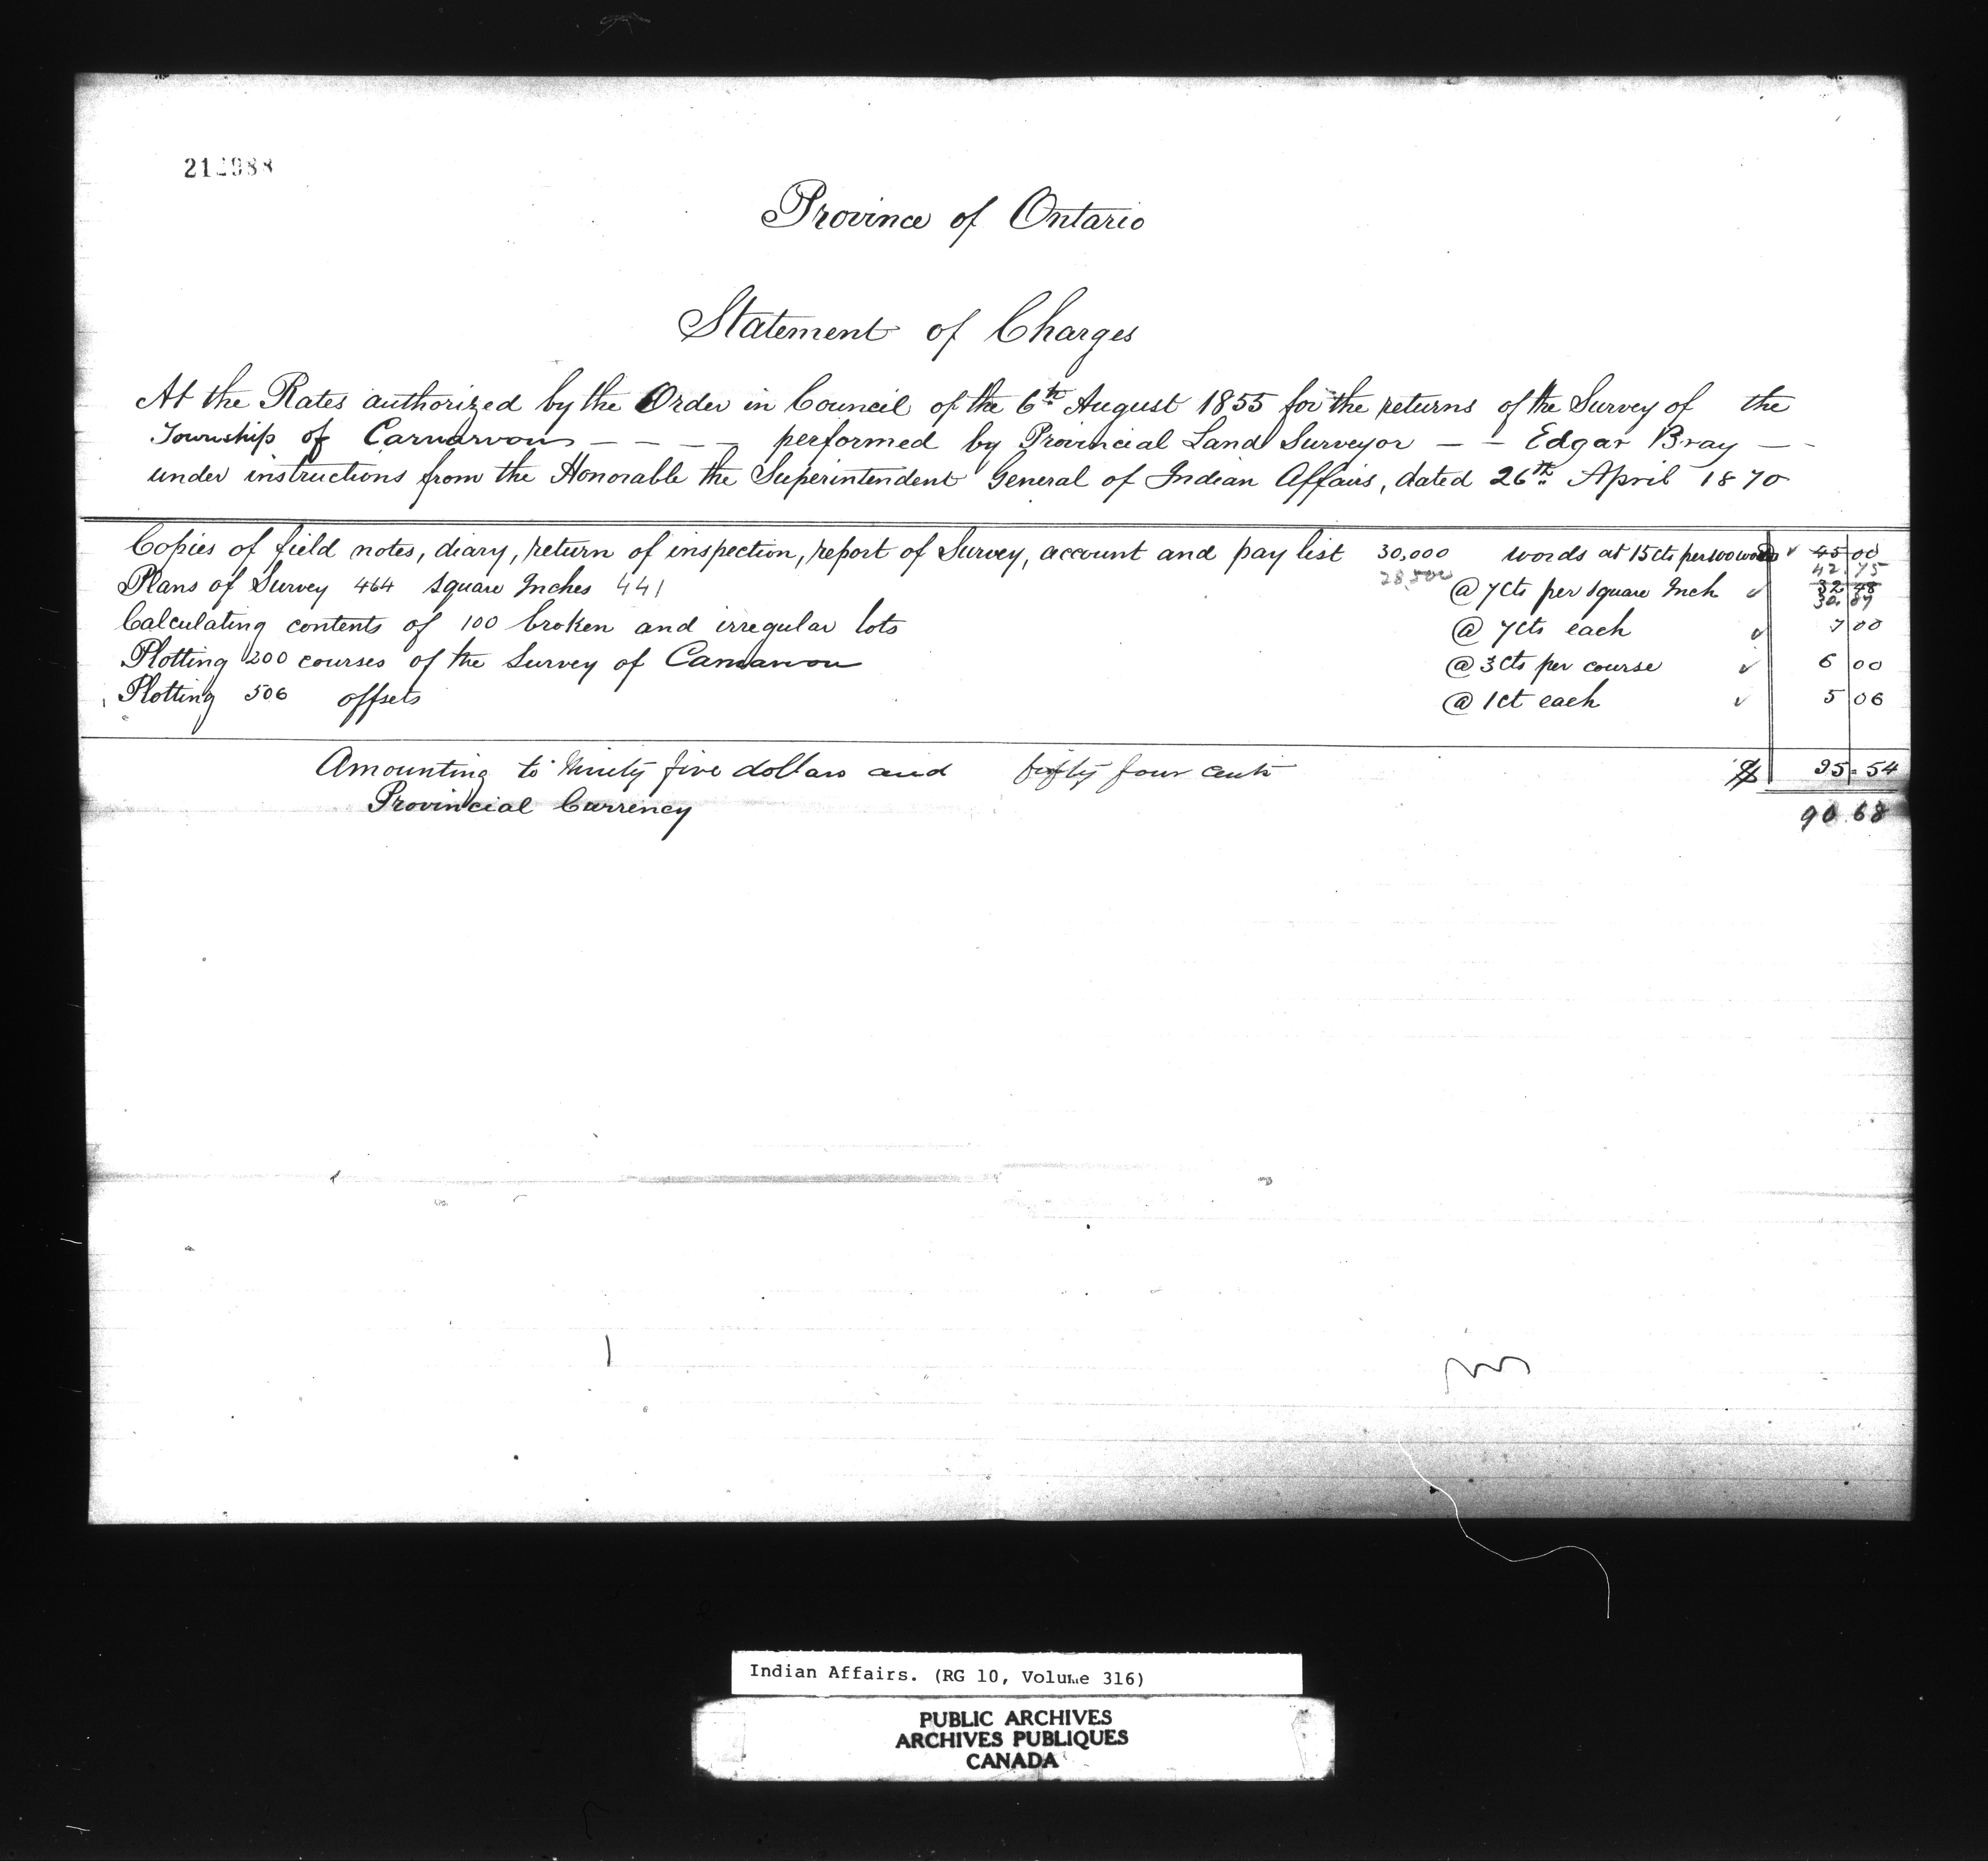 212988
Province of Ontario
Statement of Charges
At the Rates authorized by the Order in Council of the 6th August 1855 for the returns of the Survey of the
Township of Carnarvon — — — — performed by Provincial Land Surveyor — — Edgar Bray — —
under instructions from the Honorable the Superintendent General of Indian Affairs, dated 26th April 1870
Copies of field notes, diary, return of inspection, report of Survey, account and pay list 30,000 words at 15 cts per 100 words ✓ 45 00
28,500 42.75
Plans of Survey 464 square Inches 441 @ 7 cts per square Inch ✓ 32 48
30.87
Calculating contents of 100 broken and irregular lots @ 7 cts each ✓ 7 00
Plotting 200 courses of the Survey of Carnarvon @ 3 cts per course ✓ 6 00
Plotting 506 offsets @ 1 ct each ✓ 5 06
Amounting to Ninety five dollars and fifty four cents $ 95.54
Provincial Currency
90.68
Indian Affairs. (RG 10, Volume 316)
PUBLIC ARCHIVES
ARCHIVES PUBLIQUES
CANADA